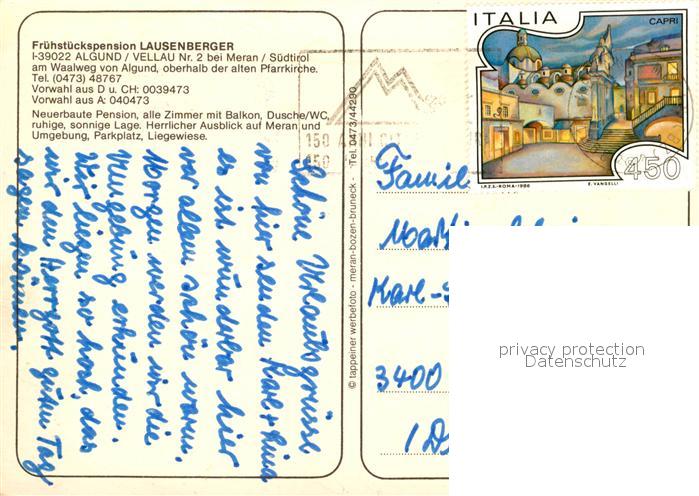 Frühstückspension LAUSENBERGER
I-39022 ALGUND / VELLAU Nr. 2 bei Meran / Südtirol
am Waalweg von Algund, oberhalb der alten Pfarrkirche.
Tel. (0473) 48767
Vorwahl aus D u. CH: 0039473
Vorwahl aus A: 040473
Neuerbaute Pension, alle Zimmer mit Balkon, Dusche/WC,
ruhige, sonnige Lage. Herrlicher Ausblick auf Meran und
Umgebung, Parkplatz, Liegewiese.
Schöne Urlaubsgrüsse
von hier senden Karl +
es ist wunderbar hier
vor allem schön warm.
Morgen werden wir die
Umgebung erkunden.
Wir liegen so hoch, das
wir dem Herrgott guten Tag
sagen können.
© tappeiner werbefoto - meran-bozen-bruneck - Tel. 0473/44290
ITALIA
CAPRI
450
I.P.Z.S.-ROMA-1986
E. VANGELLI
150
150
Famil
Karl-
3400
privacy protection
Datenschutz